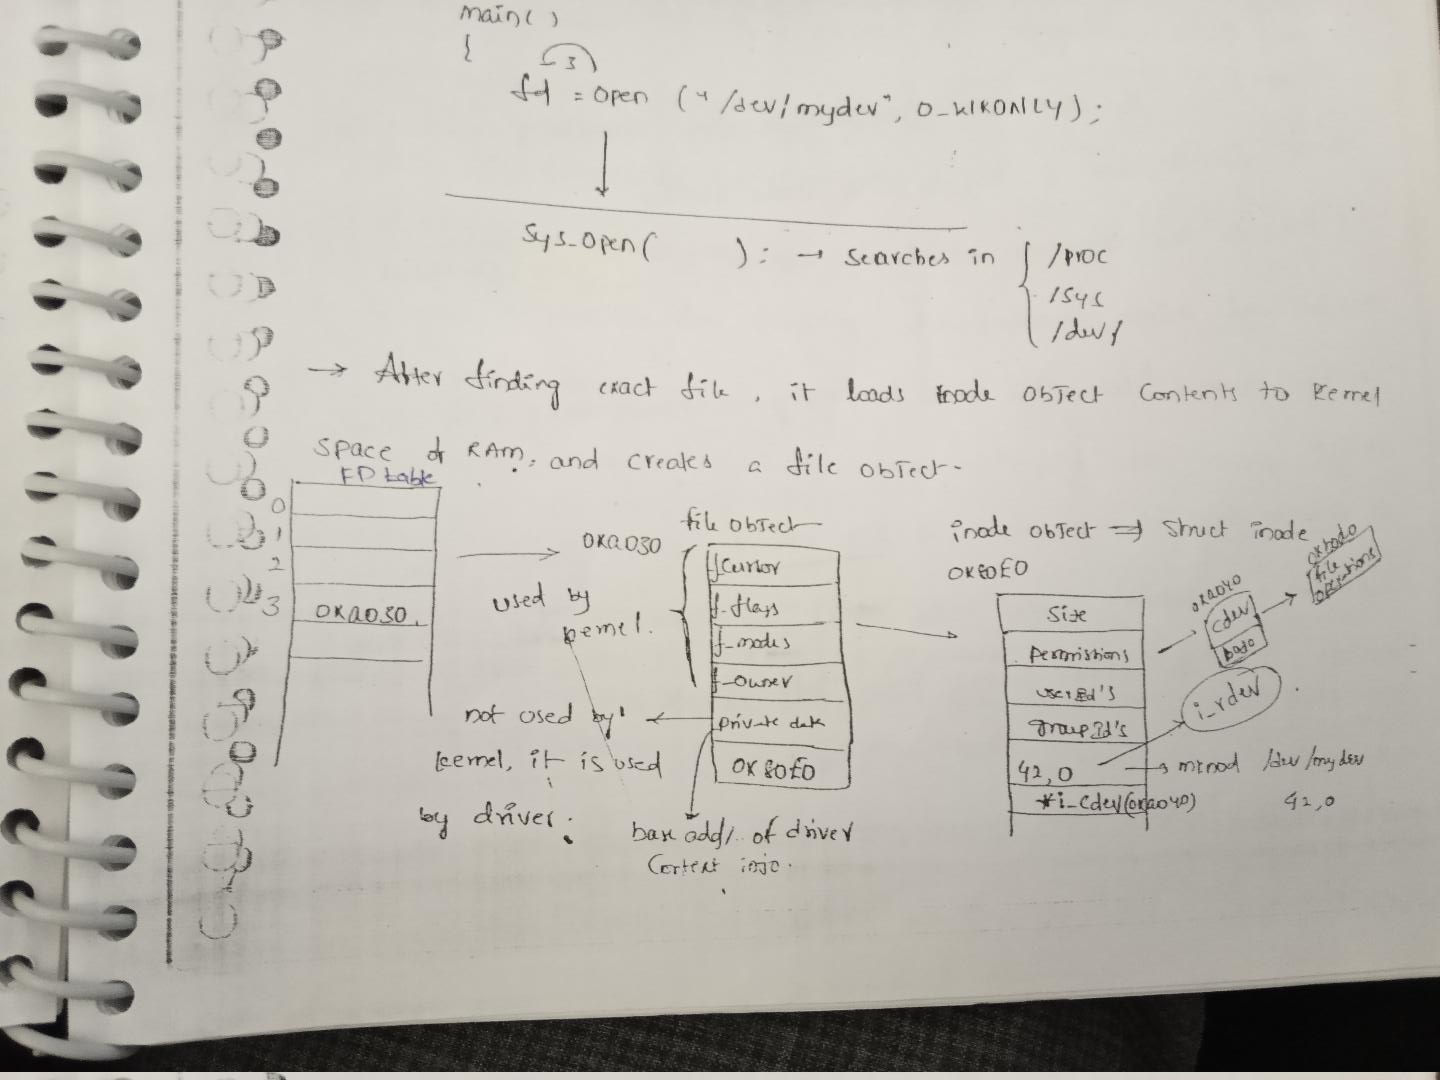 main( )
{
3
fd = open ("/dev/mydev", O_WRONLY);
sys_open( ); → searches in { /proc
/sys
/dev }
→ After finding exact file, it loads inode object contents to kernel
space of RAM, and creates a file object.
FD table
0
1
2
3 0xa030
0xa030
used by
kernel.
file object
f_cursor
f_flags
f_modes
f_owner
private data
0x80E0
not used by
kernel, it is used
by driver.
base addr. of driver
context info.
inode object ⇒ struct inode
0x80E0
size
permissions
userId's
groupId's
42,0 → mknod /dev/mydev
42,0
*i_cdev(0xa040)
i_rdev
0xa040
cdev
file
operations